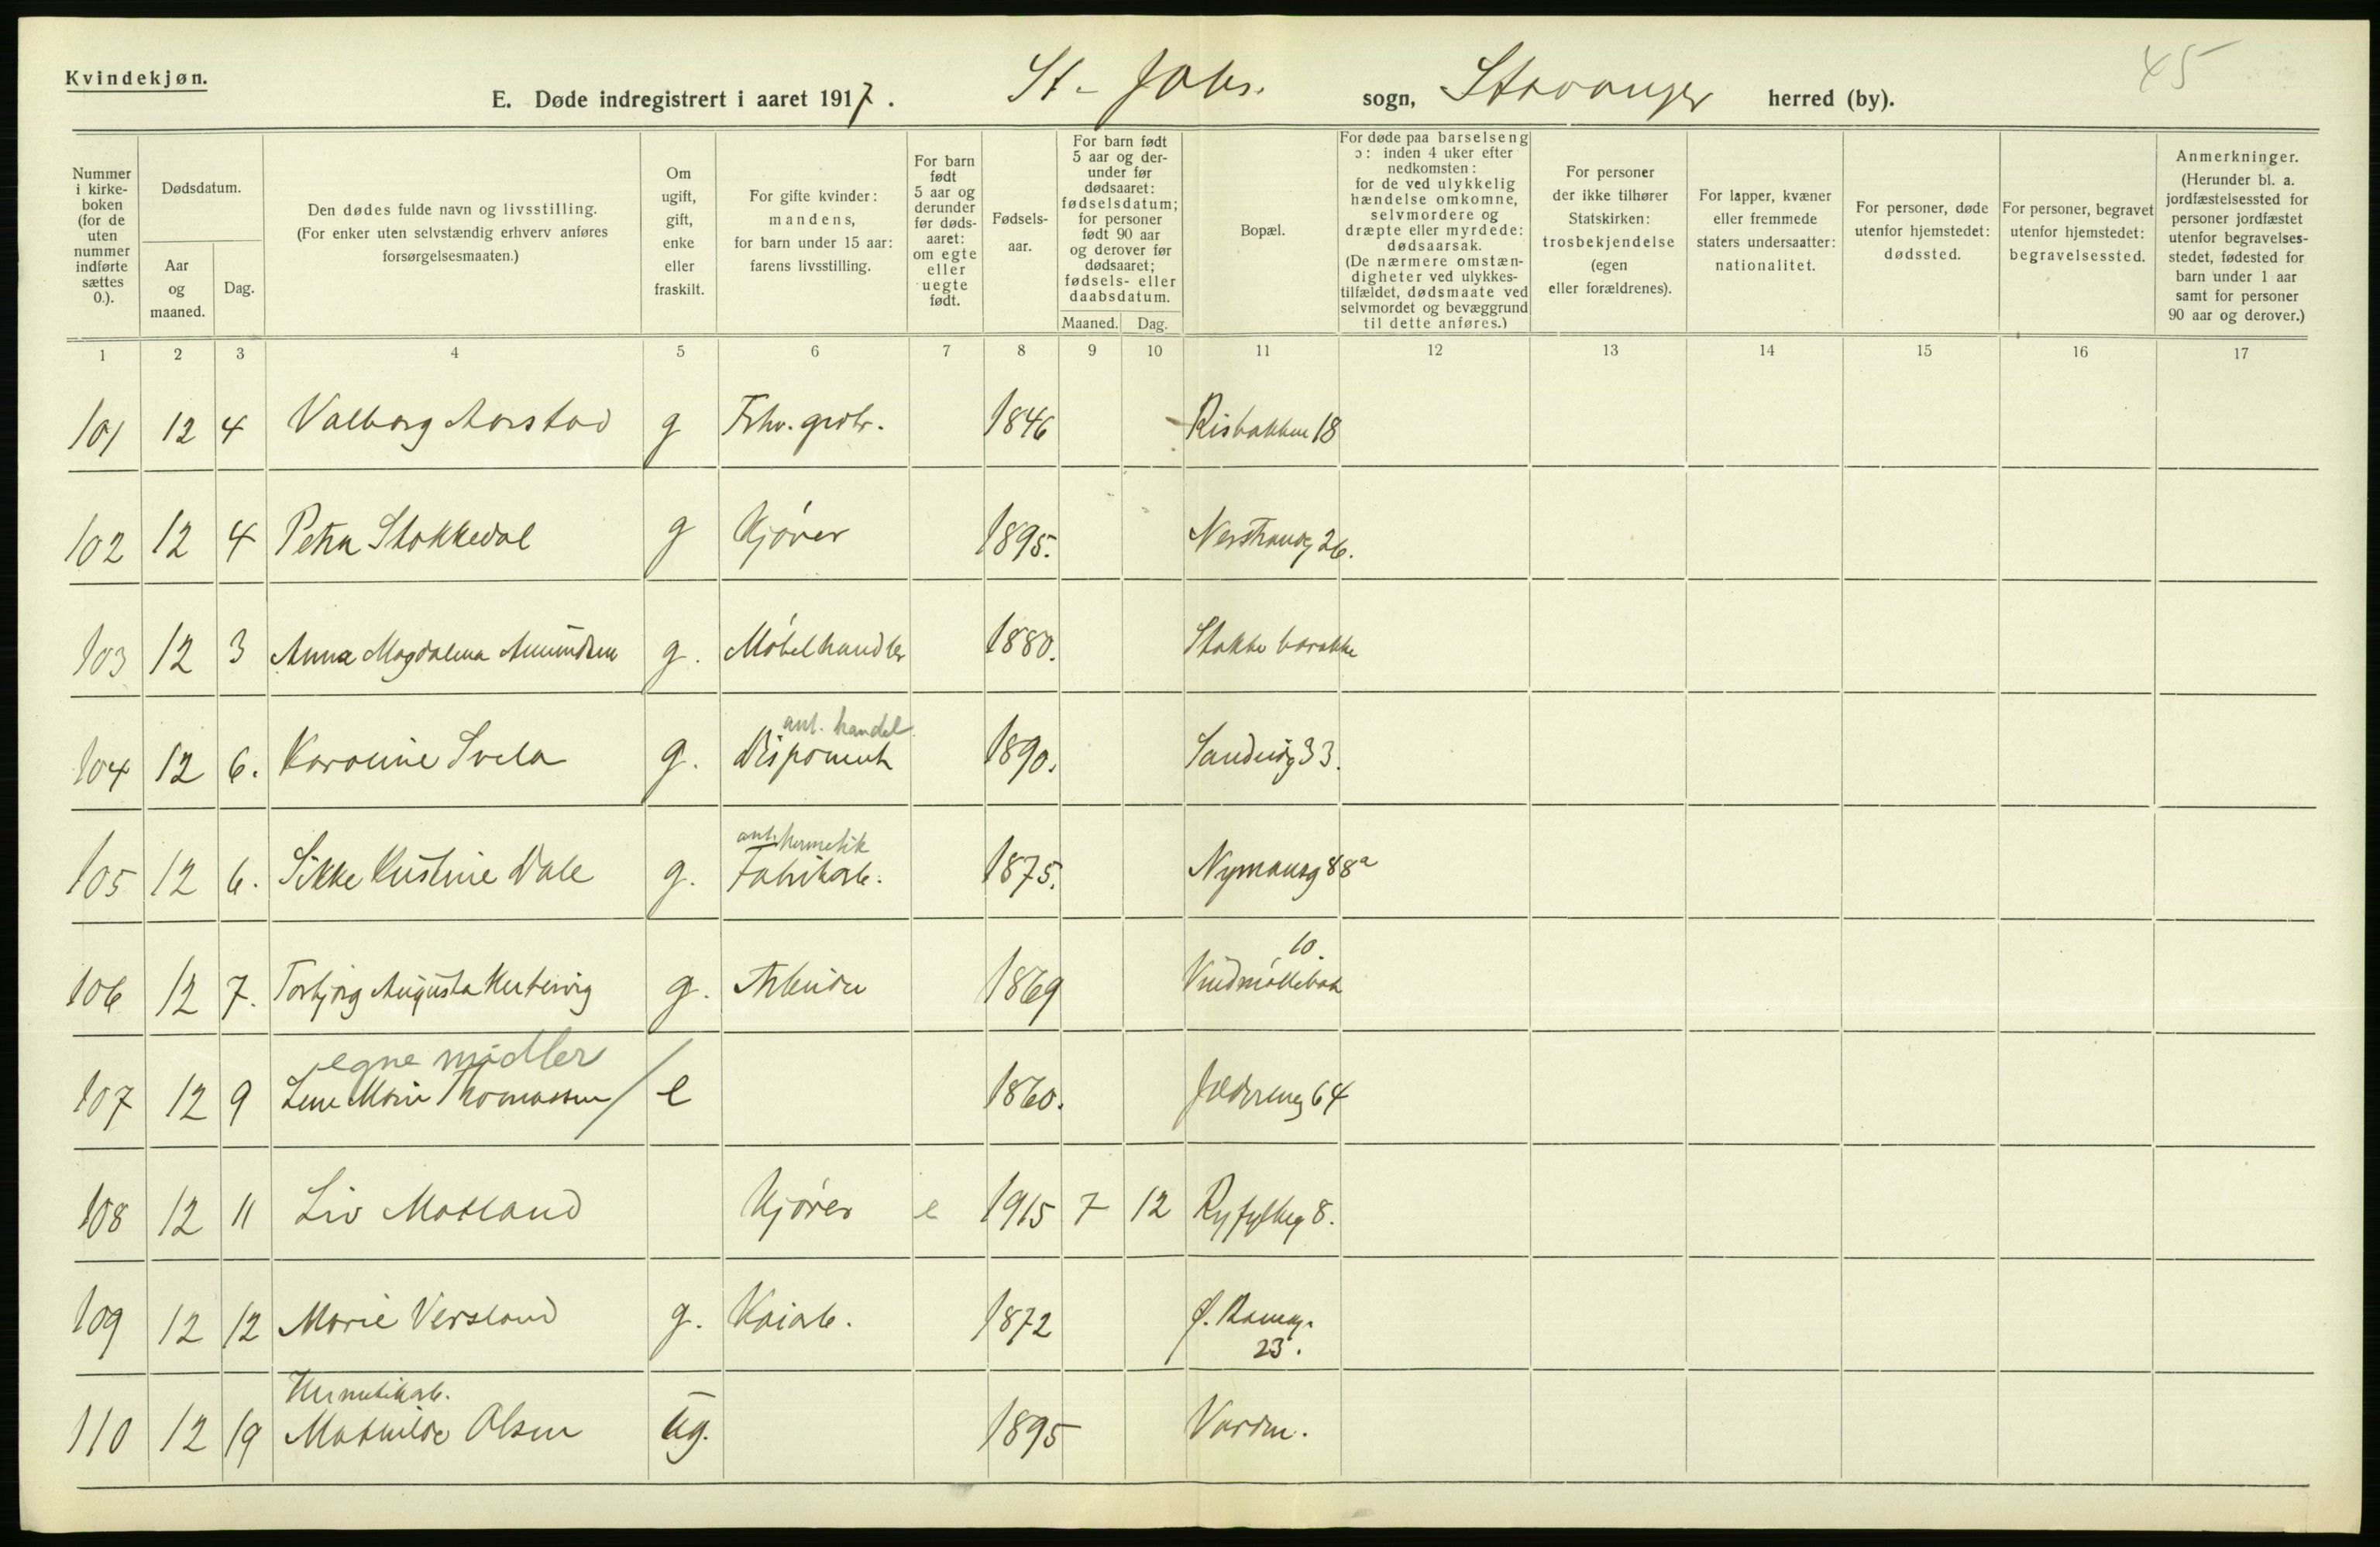 Kvindekjøn.
E. Døde indregistrert i aaret 1917. St. Johs. sogn, Stavanger herred (by).
45
Nummer i kirkeboken (for de uten nummer indførte sættes 0.).
Dødsdatum.
Aar og maaned.
Dag.
Den dødes fulde navn og livsstilling.
(For enker uten selvstændig erhverv anføres forsørgelsesmaaten.)
Om ugift, gift, enke eller fraskilt.
For gifte kvinder: mandens, for barn under 15 aar: farens livsstilling.
For barn født 5 aar og derunder før dødsaaret: om egte eller uegte født.
Fødselsaar.
For barn født 5 aar og derunder før dødsaaret: fødselsdatum; for personer født 90 aar og derover før dødsaaret; fødsels- eller daabsdatum.
Maaned. Dag.
Bopæl.
For døde paa barselseng ɔ: inden 4 uker efter nedkomsten: for de ved ulykkelig hændelse omkomne, selvmordere og dræpte eller myrdede: dødsaarsak. (De nærmere omstændigheter ved ulykkestilfældet, dødsmaate ved selvmordet og bevæggrund til dette anføres.)
For personer der ikke tilhører Statskirken: trosbekjendelse (egen eller forældrenes).
For lapper, kvæner eller fremmede staters undersaatter: nationalitet.
For personer, døde utenfor hjemstedet: dødssted.
For personer, begravet utenfor hjemstedet: begravelsessted.
Anmerkninger. (Herunder bl. a. jordfæstelsessted for personer jordfæstet utenfor begravelsesstedet, fødested for barn under 1 aar samt for personer 90 aar og derover.)
1 2 3 4 5 6 7 8 9 10 11 12 13 14 15 16 17
101 12 4 Valborg Aarstad g Fhv. grdbr. 1846 Risbakken 18
102 12 4 Petra Stokkedal g Kjører 1895. Nerstrandg 26.
103 12 3 Anna Magdalena Amundsen g. Møbelhandler 1880. Stokke barakke
ant. handel
104 12 6. Karoline Svela g. Disponent 1890. Sandvigg 33.
ant. hermetik
105 12 6. Sikke Kristine Dale g. Fabrikarb. 1875. Nymansg 88a
10.
106 12 7. Torbjørg Augusta Hertervig g. Arbeider 1869 Vindmøllebak
egne midler
107 12 9 Lene Marie Thomassen / e 1860. Jæderveg 64
108 12 11 Liv Motland Kjører e 1915 7 12 Ryfylkeg 8.
109 12 12 Marie Versland g. Kaiarb. 1872 Ø.
23.
Hermetikarb.
110 12 19 Mathilde Olsen ug. 1895 Varden.